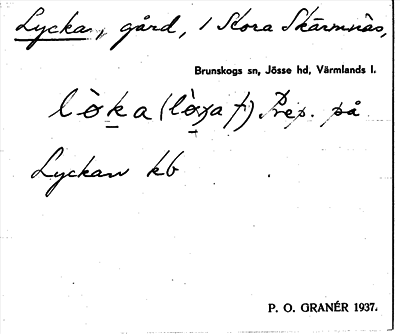 Lycka, gård, i Stora Skärmnäs,
Brunskogs sn, Jösse hd, Värmlands l.
Prep. på
Lyckan kb
P. O. GRANÉR 1937.